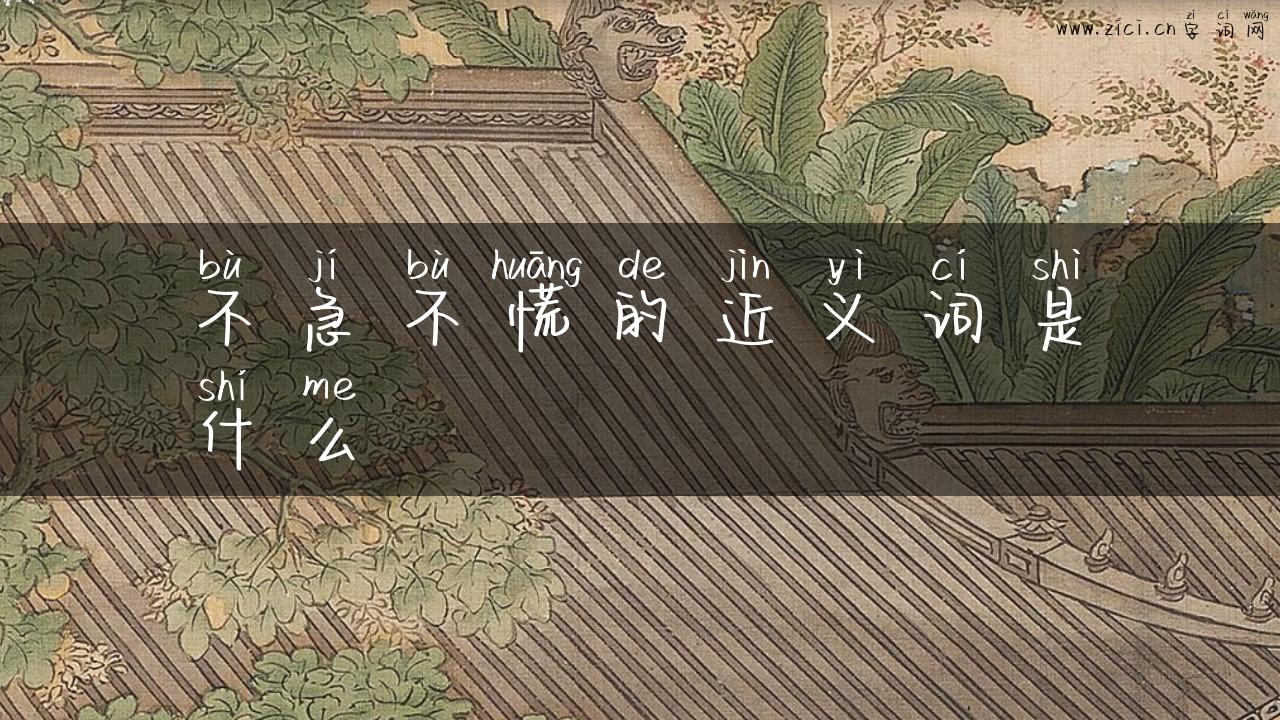 zì cí wǎng
www.zici.cn 字词网
bù jí bù huāng de jìn yì cí shì
不急不慌的近义词是
shí me
什么